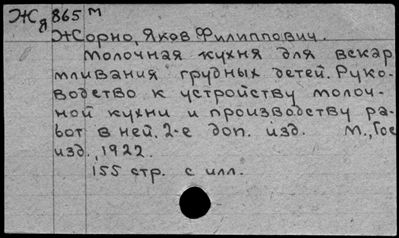 Жя 865 м
Жорно, Яков Филиппович.
Молочная кухня для вскар
мливания грудных детей. Руко-
водство к устройству молоч-
ной кухни и производству ра-
бот в ней. 2-е доп. изд. М., Гос
изд., 1922.
155 стр. с илл.